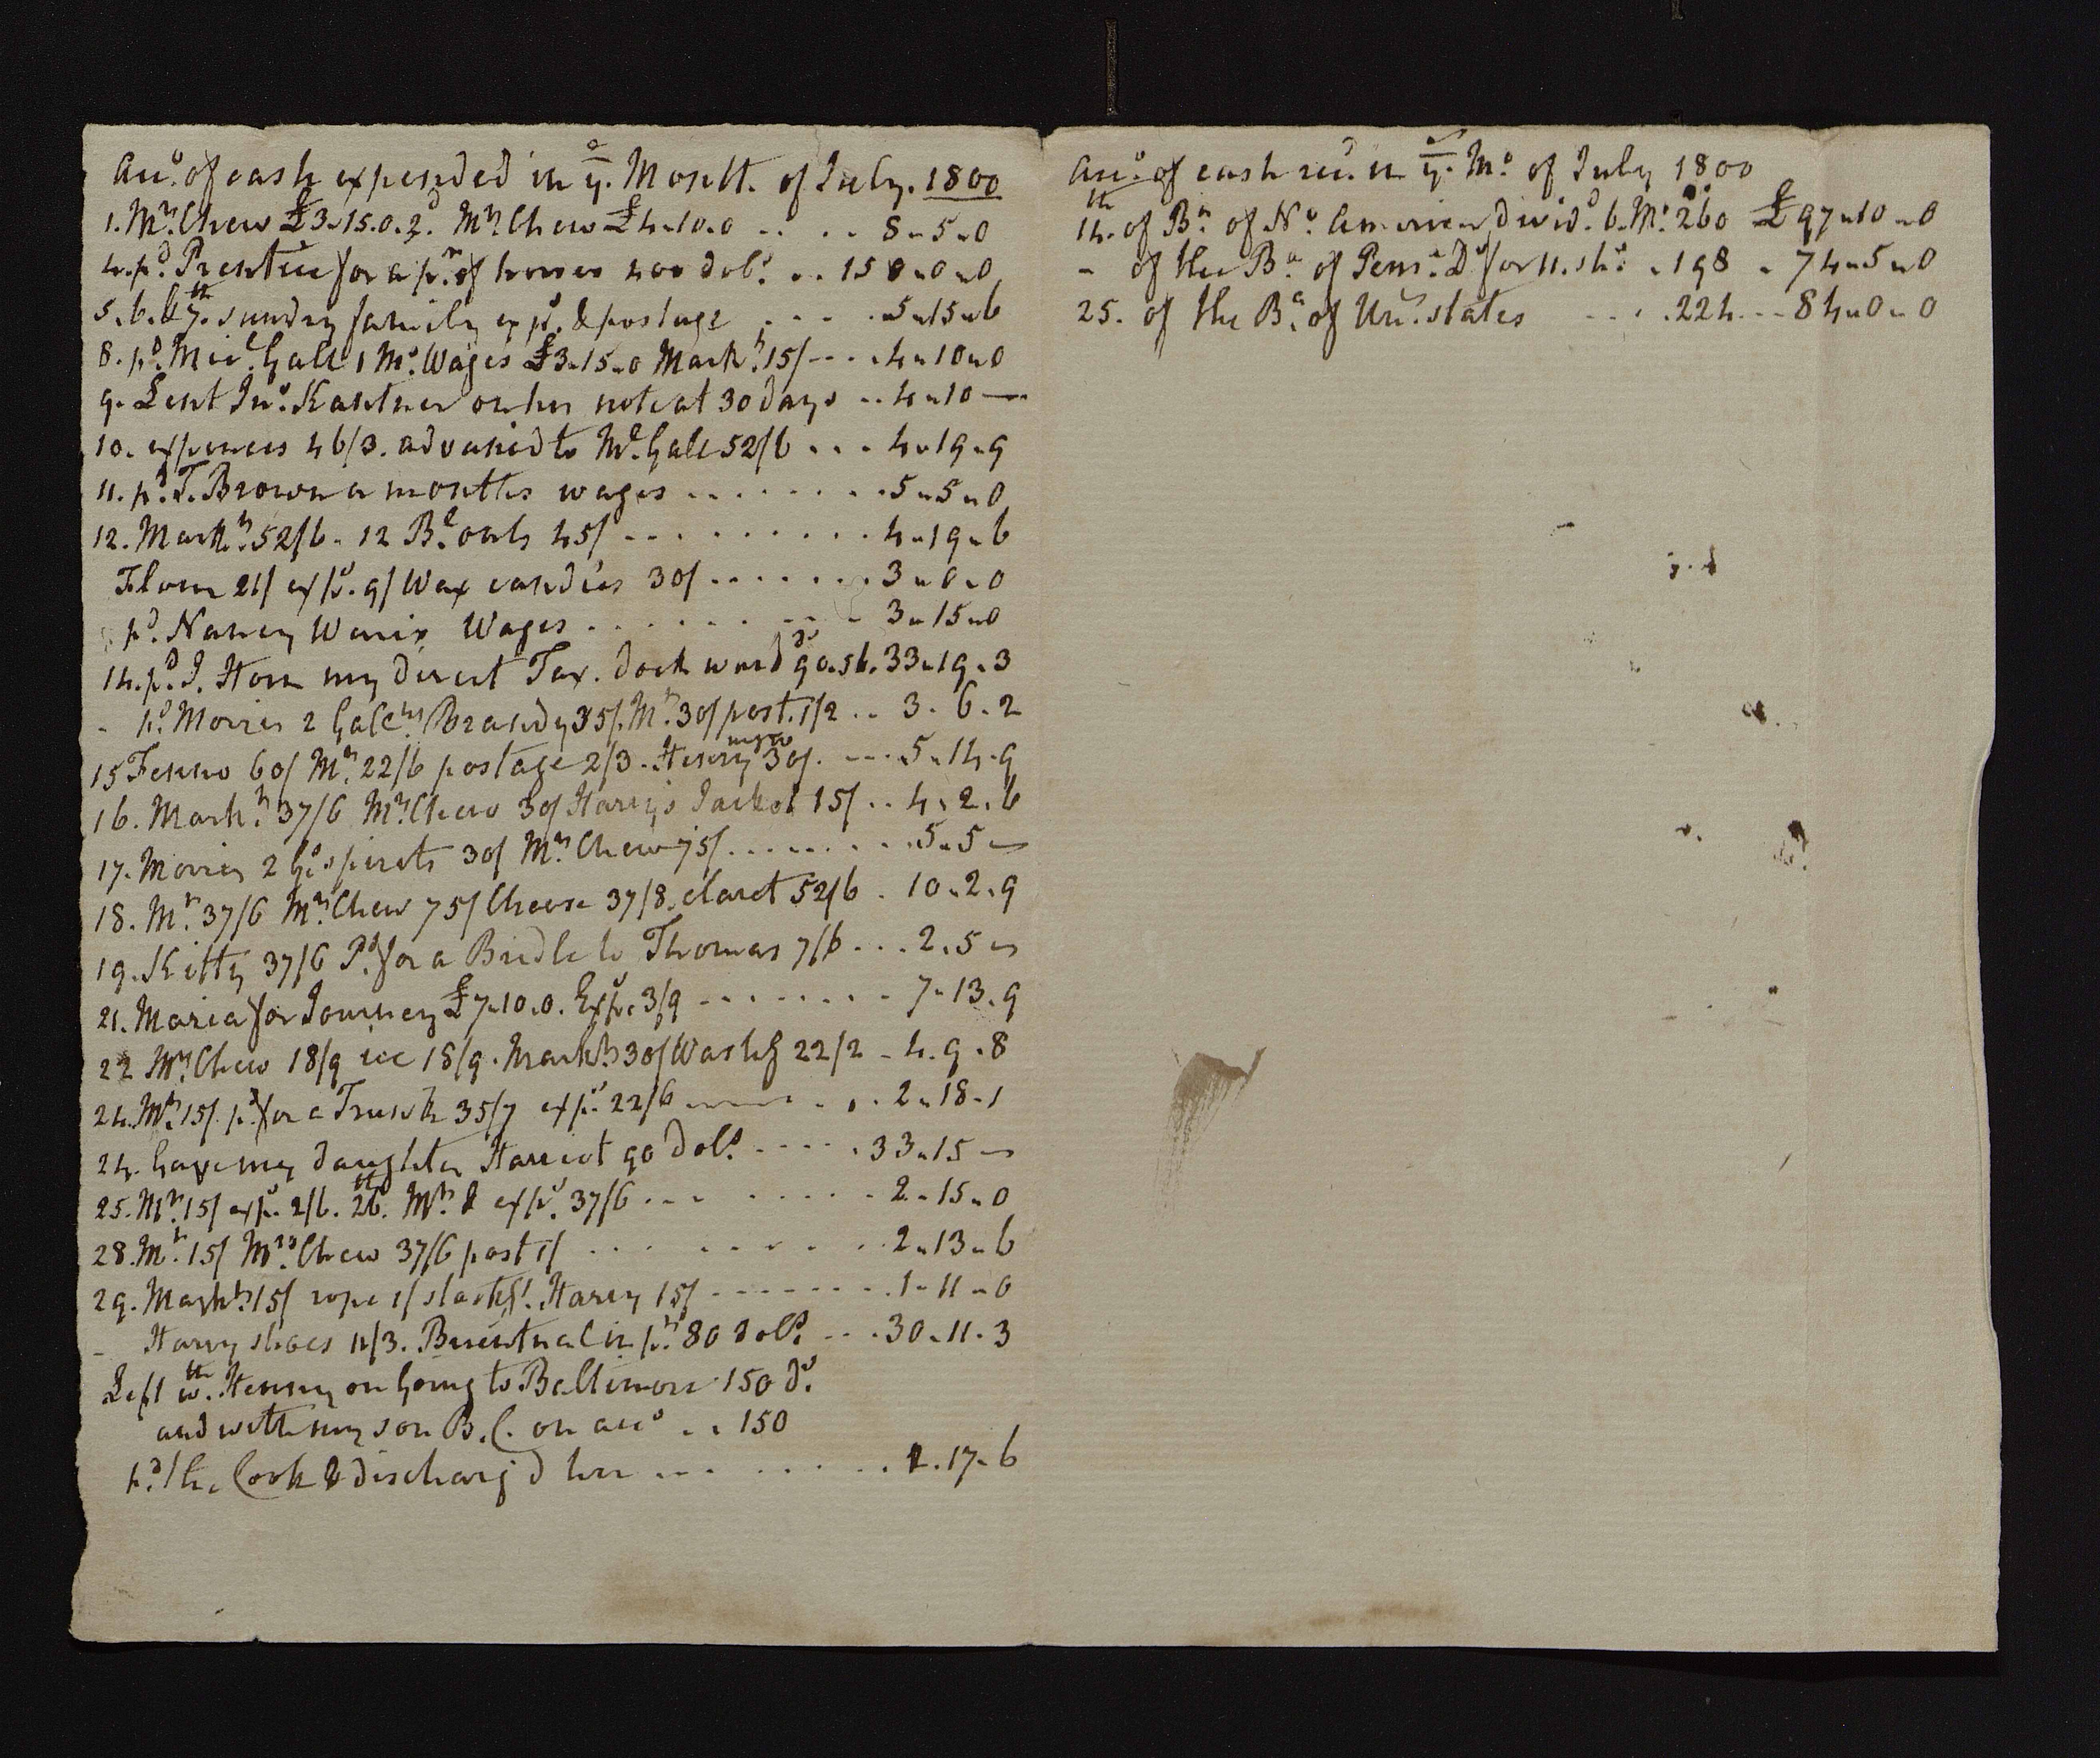 Acco. of cash expended in ye. Month. of July. 1800
1. Mrs. Chew £3..15.0. 2d. Mrs. Chew £4..10.0 .. .. 8..5..0
4. pd. Prentice for a pr. of horses 400 dols. .. 150..0..0
5. 6. & 7th. sundry family exps. & postage .... 5..15..6
8. pd. Micl. Gall 1 Mo. Wages £3..15..0 Markt. 15/ ... 4..10..0
9. Lent Jno. Kantner on his note at 30 days .. 4..10 —
10. expences 46/3. advanced to Ml. Gall 52/6 ... 4..19..9
11. pd. T. Brown a months wages ........ 5..5..0
12. Markt. 52/6. 12 Bl. oats 45/ ......... 4..19..6
Flour 21/ exps. 9/ Wax candles 30/ ....... 3..0..0
pd. Nancy Wages ....... 3..15..0
14. pd. J. Horn my direct Tax. dock ward 90.56. 33..19..3
- pd. Morris 2 Galls. Brandy 35/. Mt. 30/ post. 1/2 .. 3..6..2
15 Fenno 60/ Mt. 22/6 postage 2/3. Henry negro 30/. ... 5..14..9
16. Markt. 37/6 Mrs. Chew 30/ Harry's Jacket 15/ .. 4..2..6
17. Morris 2 Gs. spirits 30/ Mrs. Chew 75/ ........ 5..5 —
18. Mt. 37/6 Mrs. Chew 75/ Cheese 37/8. claret 52/6 . 10..2..9
19. Kitty 37/6 Pd. for a Bridle to Thomas 7/6 ... 2..5 —
21. Maria for Journey £7..10..0. Exps. 3/9 ........ 7..13..9
22 Mrs. Chew 18/9 ice 18/9. Markt. 30/ Washg 22/2 .. 4..9..8
24. Mt. 15/. pd. for a Trunk 35/7 exps. 22/6 ...... 2..18..1
24. Gave my daughter Harriot 90 dols. ..... 33..15 —
25. Mt. 15/ exps. 2/6. 26th. Mt. & exps. 37/6 ........ 2..15..0
28. Mt. 15/ Mrs. Chew 37/6 post 1/ ......... 2..13..6
29. Markt. 15/ rope 1/ Harry 15/ ........ 1..11..0
- Harry shoes 11/3. pr. 80 dols. ... 30..11..3
Left wth. Henny on Going to Baltimore 150 do.
and with my son B. C. on acco .. 150
pd. the Cook & discharg'd her ......... 2..17..6
Acco. of cash recd. in ye. Mo. of July 1800
14th. of Ba. of No. American divid. 6. Mo. 260 £97..10..0
- of the Ba. of Penna. Do for 11. shs. . 198 . 74..5..0
25. of the Ba. of Und. states .... 224 ... 84..0..0